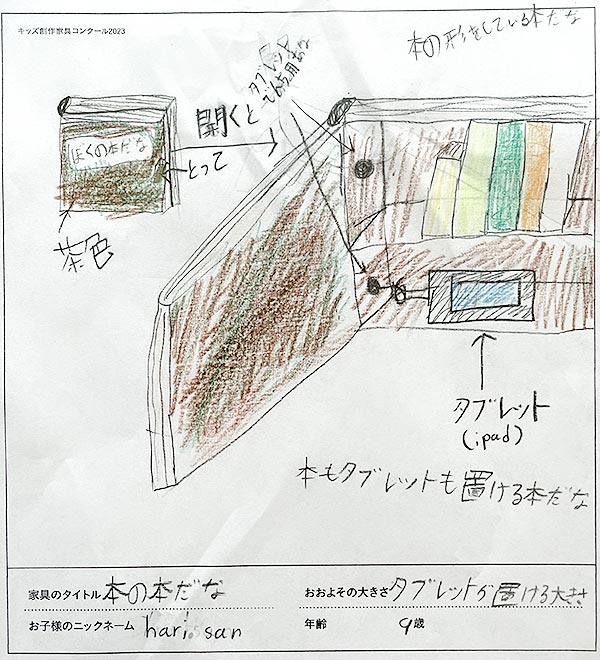 キッズ創作家具コンクール2023
本の形をしている本だな
タブレット
開くと
ぼくの本だな
とって
茶色
タブレット
(ipad)
本もタブレットも置ける本だな
家具のタイトル 本の本だな
おおよその大きさ タブレットが置ける大きさ
お子様のニックネーム hari san
年齢 9歳